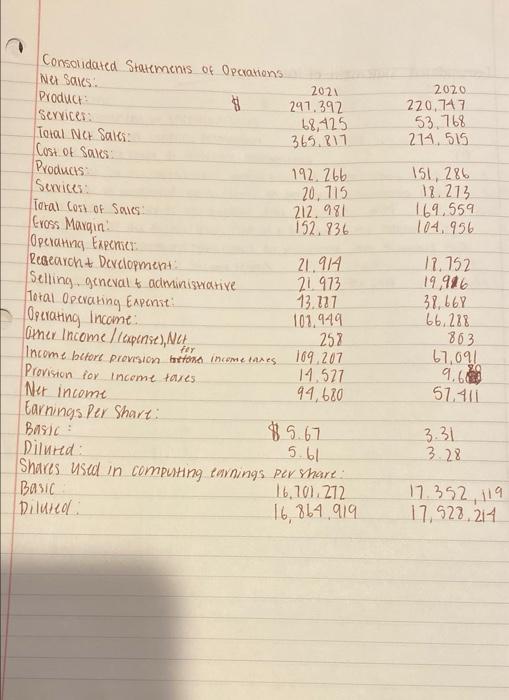 Consolidated Statements of Operations
Net Sales: 2021 2020
Product: $ 297.392 220,747
Services: 68,425 53,768
Total Net Sales: 365.817 274,515
Cost of Sales:
Products: 192.266 151,286
Services: 20,715 18.273
Total Cost of Sales: 212.981 169.559
Gross Margin: 152,836 104,956
Operating Expenses:
Research & Development: 21,914 18,752
Selling, general & administrative 21,973 19,916
Total Operating Expense: 43,887 38,668
Operating Income: 108,949 66,288
Other Income/(expense), Net 258 803
Income before provision for income taxes 109,207 67,091
Provision for income taxes 14,527 9,680
Net income 94,680 57,411
Earnings Per Share:
Basic: $ 5.67 3.31
Diluted: 5.61 3.28
Shares used in computing earnings per share:
Basic 16,701,272 17.352,119
Diluted: 16,864,919 17,528,214